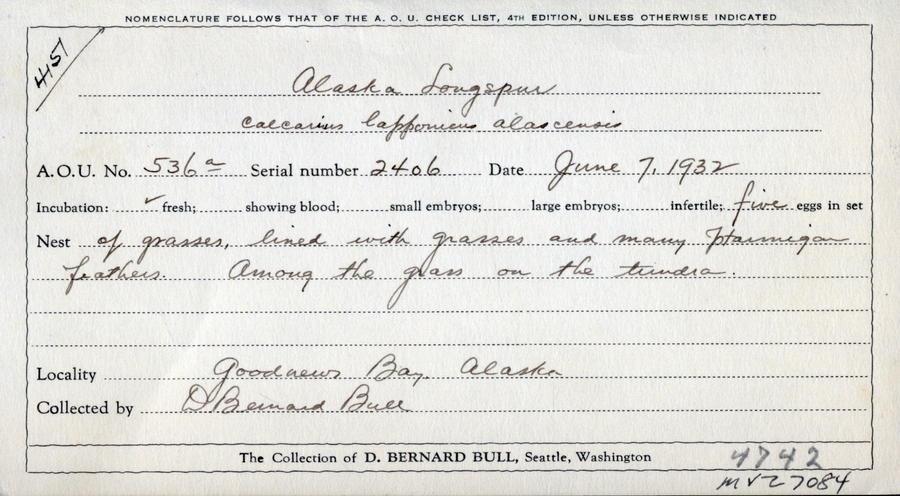 NOMENCLATURE FOLLOWS THAT OF THE A. O. U. CHECK LIST, 4TH EDITION, UNLESS OTHERWISE INDICATED
4151
Alaska Longspur
Calcarius lapponicus alascensis
A.O.U. No. 536a Serial number 2406 Date June 7, 1932
Incubation: ✓ fresh; showing blood; small embryos; large embryos; infertile; five eggs in set
Nest of grasses, lined with grasses and many Ptarmigan
feathers. Among the grass on the tundra.
Locality Goodnews Bay, Alaska
Collected by D Bernard Bull
The Collection of D. BERNARD BULL, Seattle, Washington
4742
MVZ 7084